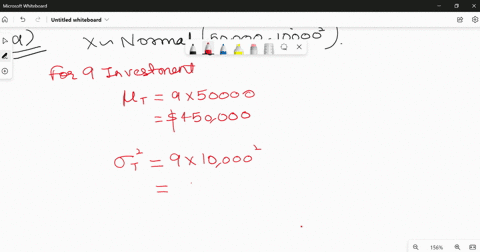 Microsoft Whiteboard
Untitled whiteboard
a) X ~ Normal (50,000, 10000²).
For 9 Investment
μ_T = 9 x 50000
= $450,000
σ_T² = 9 x 10,000²
=
156%